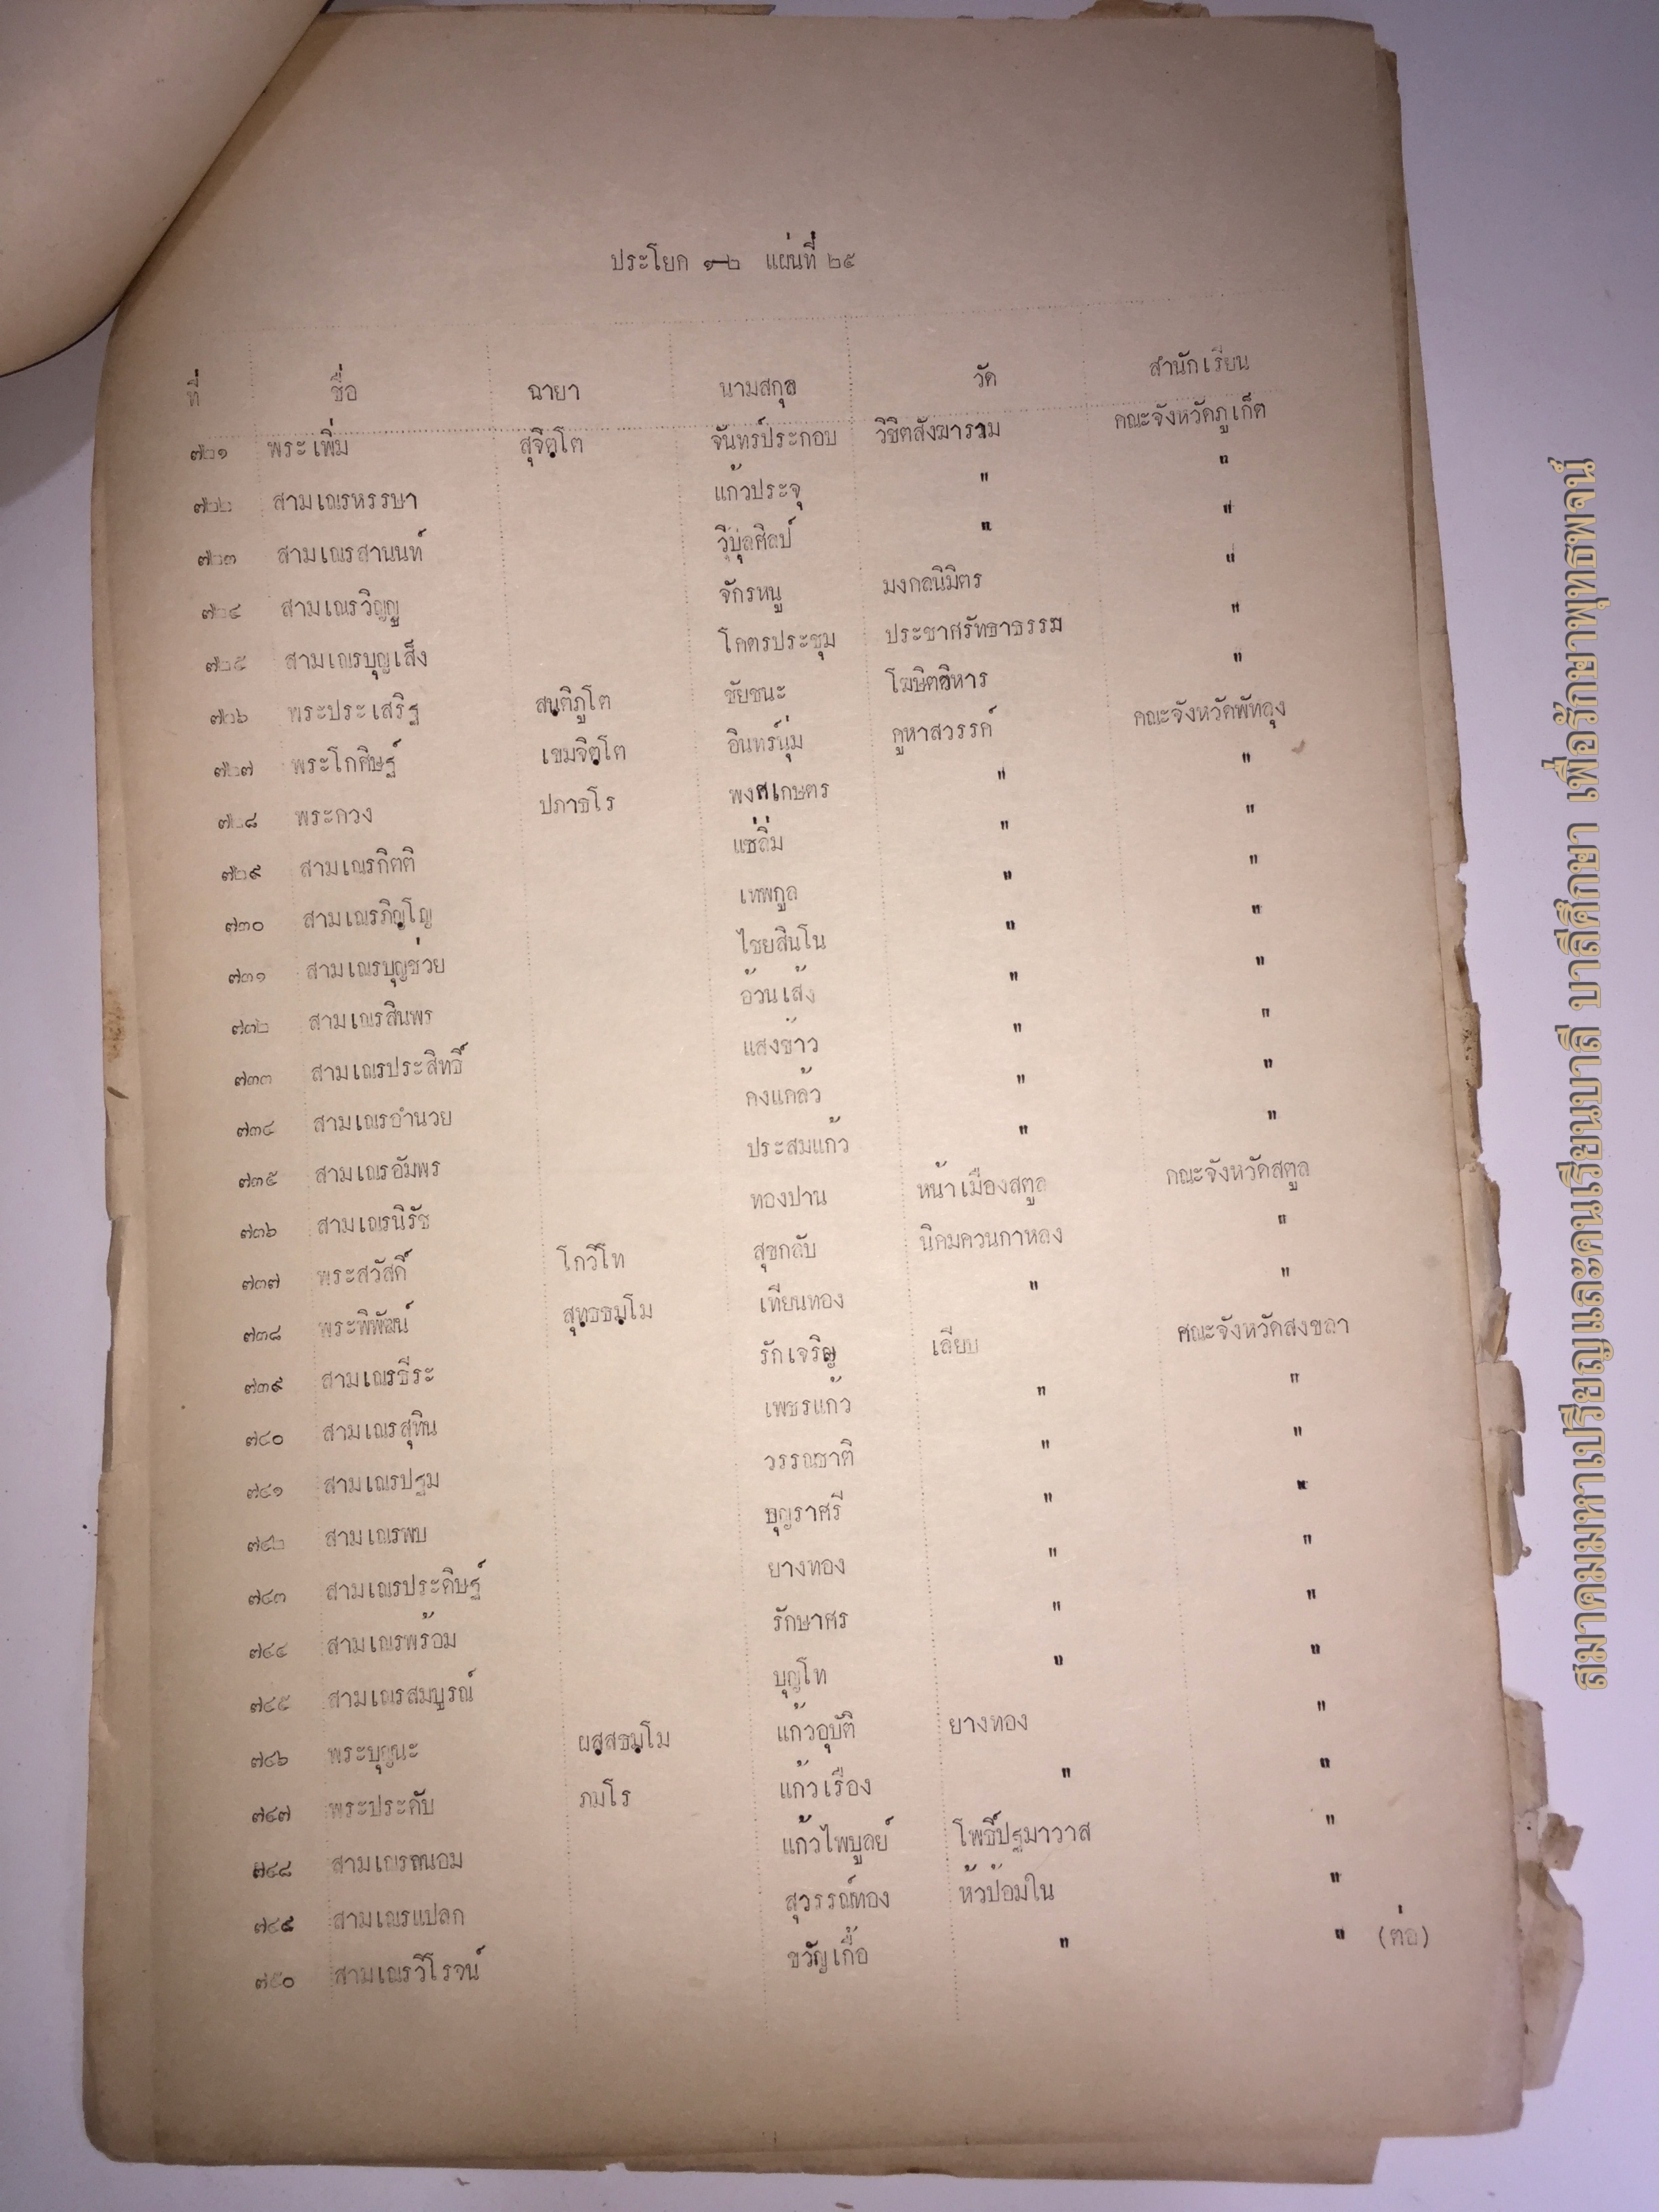 ประโยค ๑-๒ แผ่นที่ ๒๕
ที่ ชื่อ ฉายา นามสกุล วัด สำนักเรียน
๗๒๑ พระเพิ่ม สุจิตฺโต จันทร์ประกอบ วิชิตสังฆาราม คณะจังหวัดภูเก็ต
๗๒๒ สามเณรหรรษา แก้วประจุ " "
๗๒๓ สามเณรสานนท์ วิบุลศิลป์ " "
๗๒๔ สามเณรวิญญู จักรหนู มงคลนิมิตร "
๗๒๕ สามเณรบุญเส็ง โคตรประชุม ประชาศรัทธาธรรม "
๗๒๖ พระประเสริฐ สนฺติภูโต ชัยชนะ โฆษิตวิหาร "
๗๒๗ พระโกศิษฐ์ เขมจิตฺโต อินทร์นุ่ม คูหาสวรรค์ คณะจังหวัดพัทลุง
๗๒๘ พระกวง ปภาธโร พงศเกษตร " "
๗๒๙ สามเณรกิตติ แซ่ลิ่ม " "
๗๓๐ สามเณรภิญโญ เทพกูล " "
๗๓๑ สามเณรบุญช่วย ไชยสินโน " "
๗๓๒ สามเณรสินพร อ้วนเส้ง " "
๗๓๓ สามเณรประสิทธิ์ แสงขาว " "
๗๓๔ สามเณรอำนวย คงแคล้ว " "
๗๓๕ สามเณรอัมพร ประสมแก้ว " "
๗๓๖ สามเณรนิรัช ทองปาน หน้าเมืองสตูล คณะจังหวัดสตูล
๗๓๗ พระสวัสดิ์ โกวิโท สุขกลับ นิคมควนกาหลง "
๗๓๘ พระพิพัฒน์ สุทฺธธมฺโม เทียนทอง " "
๗๓๙ สามเณรธีระ รักเจริญ เลียบ คณะจังหวัดสงขลา
๗๔๐ สามเณรสุทิน เพชรแก้ว " "
๗๔๑ สามเณรปฐม วรรณชาติ " "
๗๔๒ สามเณรพบ บุญราศรี " "
๗๔๓ สามเณรประดิษฐ์ ยางทอง " "
๗๔๔ สามเณรพร้อม รักษาศร " "
๗๔๕ สามเณรสมบูรณ์ บุญโท " "
๗๔๖ พระบุญนะ ผสฺสธมฺโม แก้วอุบัติ ยางทอง "
๗๔๗ พระประดับ ภมโร แก้วเรือง " "
๗๔๘ สามเณรถนอม แก้วไพบูลย์ โพธิ์ปฐมาวาส "
๗๔๙ สามเณรแปลก สุวรรณ์ทอง หัวป้อมใน "
๗๕๐ สามเณรวิโรจน์ ขวัญเกื้อ " " (ต่อ)
สมาคมมหาเปรียญและคนเรียนบาลี บาลีศึกษา เพื่อรักษาพุทธพจน์